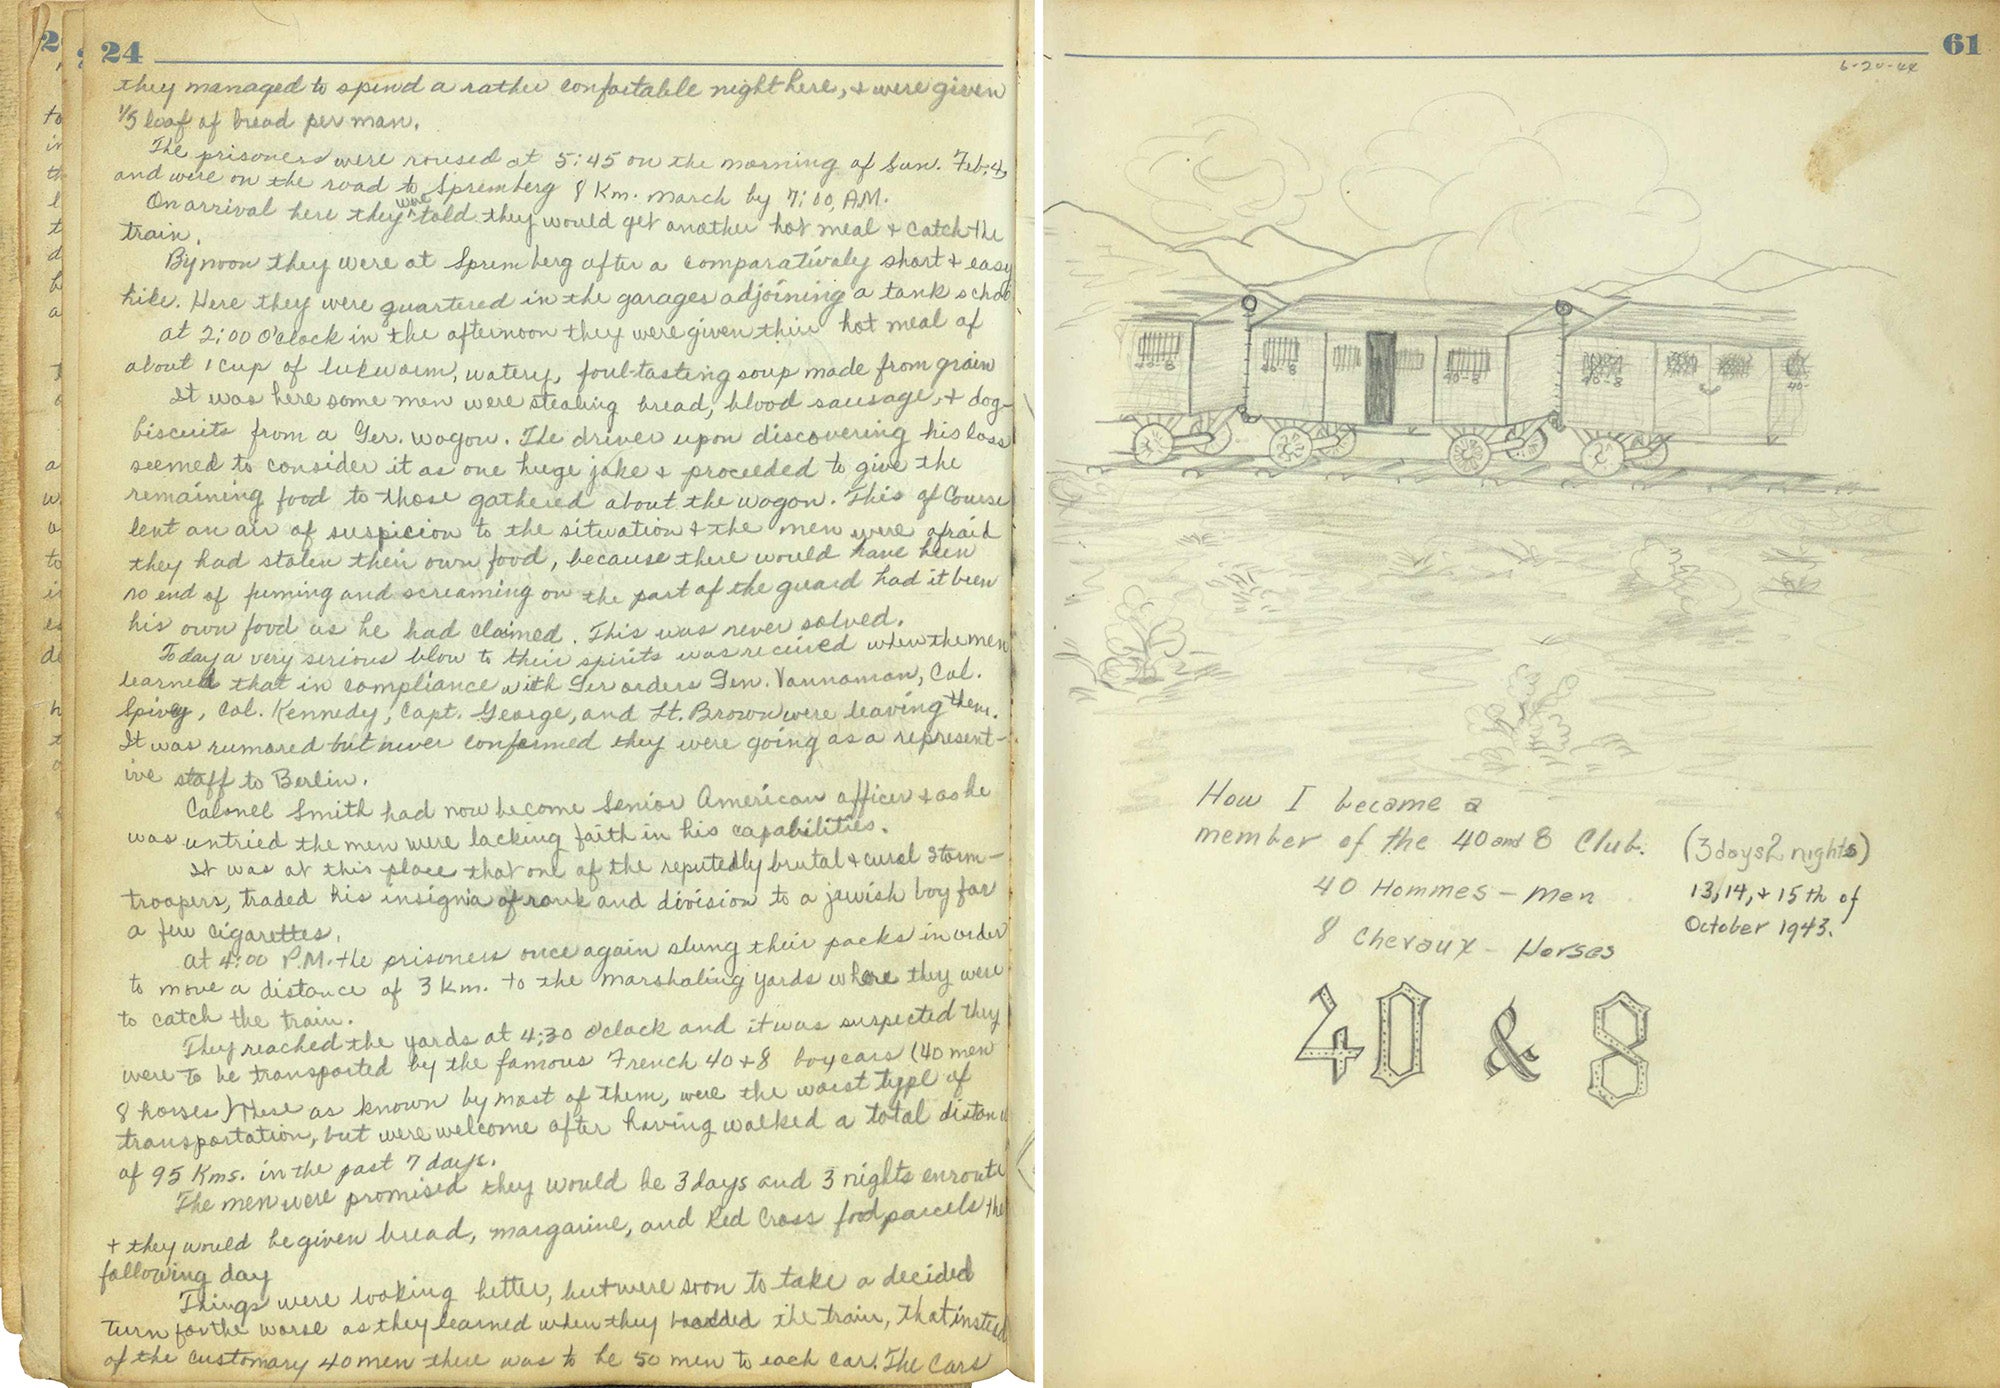 24
they managed to spend a rather confortable night here, & were given
1/5 loaf of bread per man.
The prisoners were roused at 5:45 on the morning of Sun. Feb. 4,
and were on the road to Spremberg 8 Km. march by 7:00, AM.
On arrival here they were told they would get another hot meal & catch the
train.
By noon they were at Spremberg after a comparativaly short & easy
hike. Here they were quartered in the garages adjoining a tank school
at 2:00 O'clock in the afternoon they were given their hot meal of
about 1 cup of lukwarm, watery, foul-tasting soup made from grain
It was here some men were stealing bread, blood sausage, & dog-
biscuits from a Ger. wagon. The driver upon discovering his loss
seemed to consider it as one huge joke & proceeded to give the
remaining food to those gathered about the wagon. This of Course
lent an air of suspicion to the situation & the men were afraid
they had stolen their own food, because there would have been
no end of fuming and screaming on the part of the guard had it been
his own food as he had claimed. This was never solved.
Today a very serious blow to their spirits was received when the men
learned that in compliance with Ger orders Gen. Vannaman, Col.
Spivey, Col. Kennedy, Capt. George, and Lt. Brown were leaving them.
It was rumored but never confermed they were going as a represent-
ive staff to Berlin.
Colonel Smith had now become Senior American officer & as he
was untried the men were lacking faith in his capabilities.
It was at this place that one of the reputedly brutal & cural Storm-
troopers, traded his insignia of rank and division to a jewish boy for
a few cigarettes.
at 4:00 P.M. the prisoners once again slung their packs in order
to move a distance of 3 km. to the marshaling yards where they were
to catch the train.
They reached the yards at 4:30 O'clock and it was suspected they
were to be transported by the famous French 40 & 8 boxcars (40 men
8 horses) These as known by most of them, were the worst type of
transportation, but were welcome after having walked a total distance
of 95 Kms. in the past 7 days.
The men were promised they would be 3 days and 3 nights enroute
& they would be given bread, margarine, and Red Cross food parcels the
following day
Things were looking better, but were soon to take a decided
turn for the worse as they learned when they boadded the train, that instead
of the customary 40 men there was to be 50 men to each car. The cars
61
6-20-44
40-8
40-8
40-8
40-8
40-
How I became a
member of the 40 and 8 Club. (3 days 2 nights)
40 Hommes - Men 13, 14, & 15th of
8 Chevaux - Horses October 1943.
40 & 8